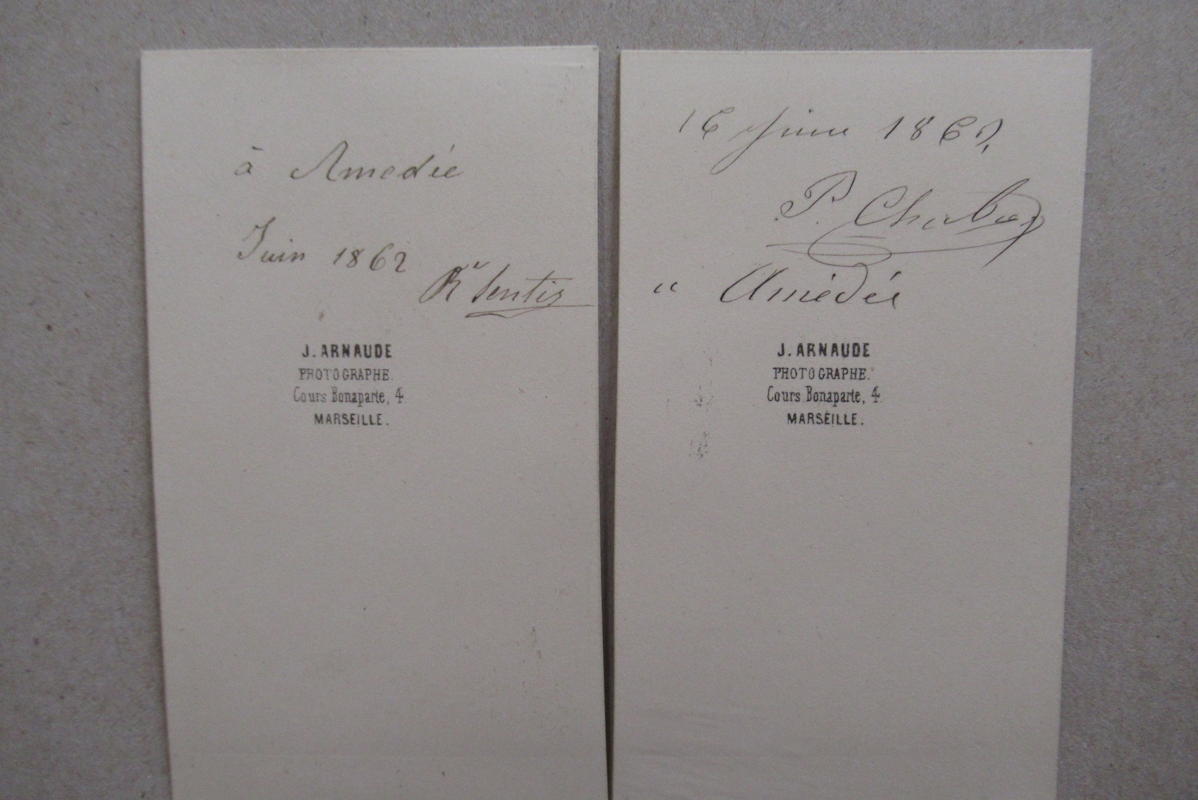 à Amedée
Juin 1862
Rr Sentis
J. ARNAUDE
PHOTOGRAPHE.
Cours Bonaparte, 4
MARSEILLE.
16 Juin 1862,
P.
a Amédée
J. ARNAUDE
PHOTOGRAPHE.
Cours Bonaparte, 4
MARSEILLE.